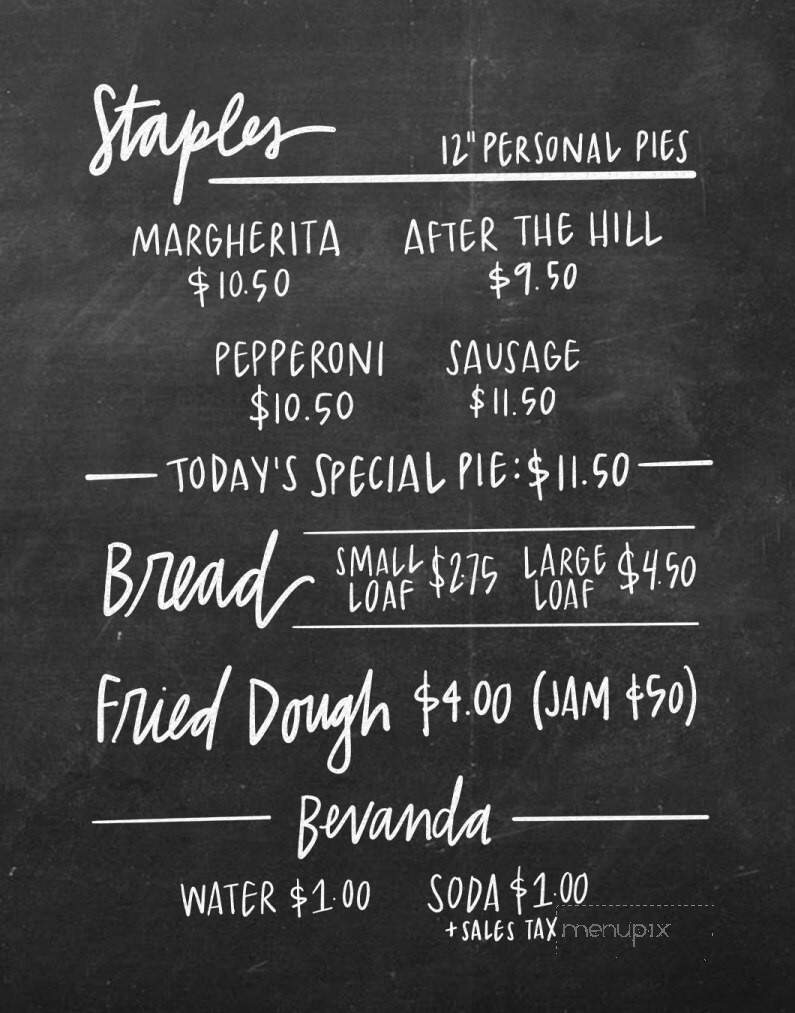 Staples 12" PERSONAL PIES
MARGHERITA AFTER THE HILL
$10.50 $9.50
PEPPERONI SAUSAGE
$10.50 $11.50
TODAY'S SPECIAL PIE: $11.50
Bread SMALL LOAF $2.75 LARGE LOAF $4.50
Fried Dough $4.00 (JAM ¢50)
Bevanda
WATER $1.00 SODA $1.00
+ SALES TAX
menupix